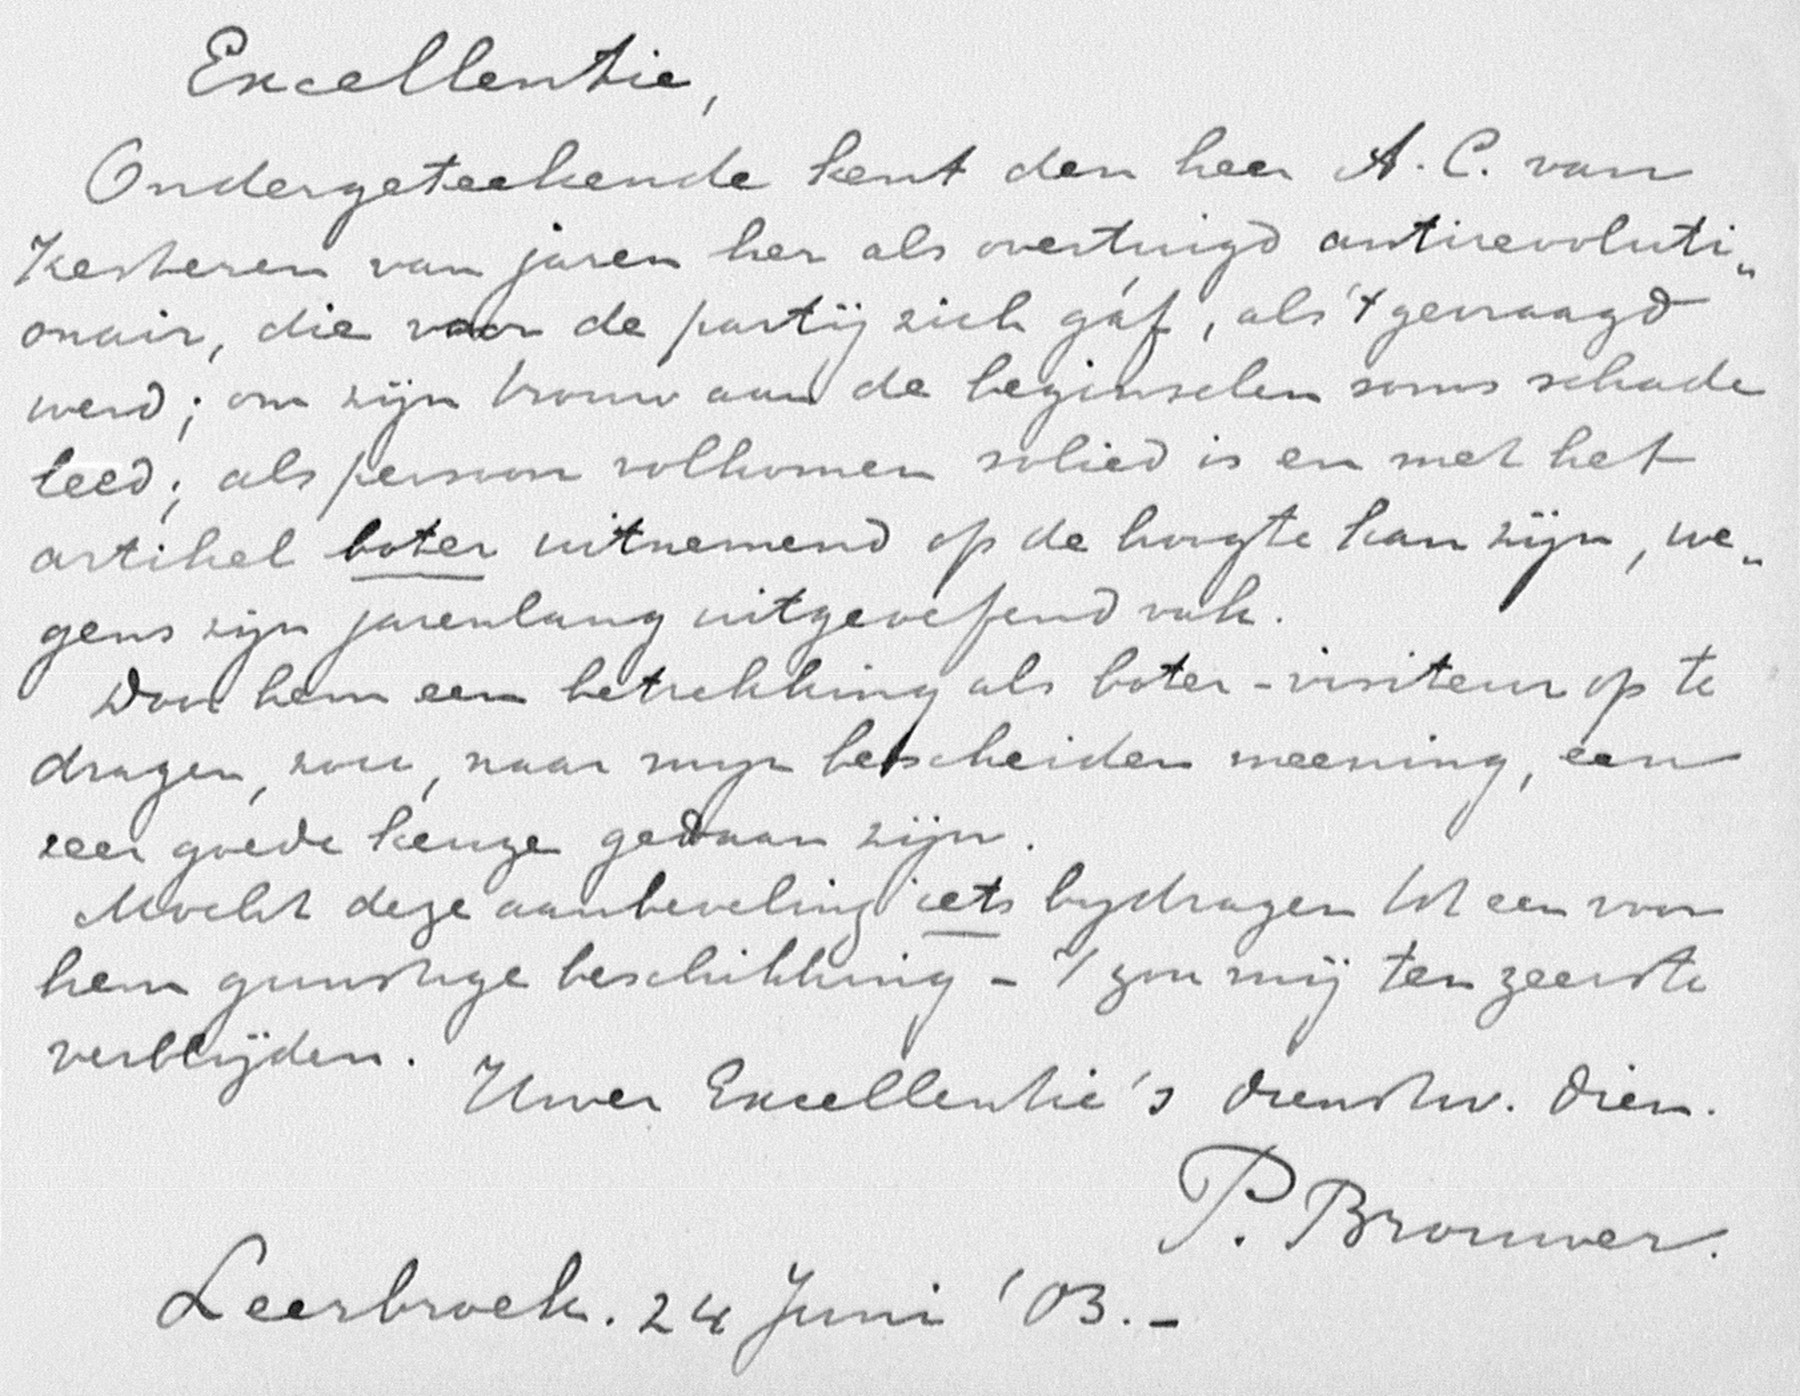 Excellentie,
Ondergeteekende kent den heer A. C. van
Kesteren van jaren her als overtuigd antirevoluti„
onair, die voor de partij zich gáf, als 't gevraagd
werd; om zijn trouw aan de beginselen soms schade
leed; als persoon volkomen solied is en met het
artikel boter uitnemend op de hoogte kan zijn, we„
gens zijn jarenlang uitgeoefend vak.
Door hem een betrekking als boter-visiteur op te
dragen, zou, naar mijn bescheiden meening, een
zeer goede keuze gedaan zijn.
Mocht deze aanbeveling iets bijdragen tot een voor
hem gunstige beschikking – 't zou mij ten zeerste
verblijden.
Uwer Excellentie's dienstw. dien.
P. Brouwer.
Leerbroek. 24 Juni '03. –